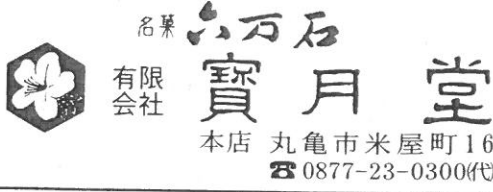 名菓 六万石
有限会社 寳月堂
本店 丸亀市米屋町16
☎0877-23-0300㈹